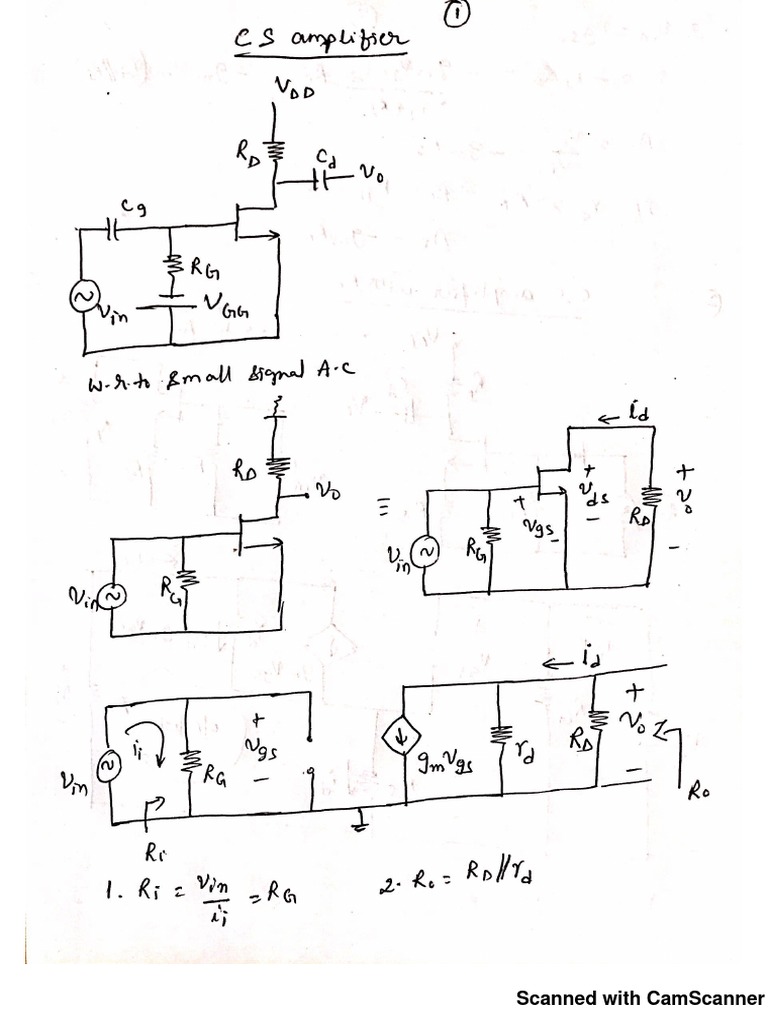 1
CS amplifier
VDD
RD
Cd
Vo
Cg
RG
Vin
VGG
w.r.to small signal A.C
RD
Vo
Vin
RG
≡
id
+
Vds
-
+
Vgs
-
RD
+
Vo
-
Vin
RG
id
ii
+
Vgs
-
RG
Vin
gmVgs
rd
RD
+
Vo
-
Ro
Ri
1. Ri = Vin/ii = RG
2. Ro = RD//rd
Scanned with CamScanner